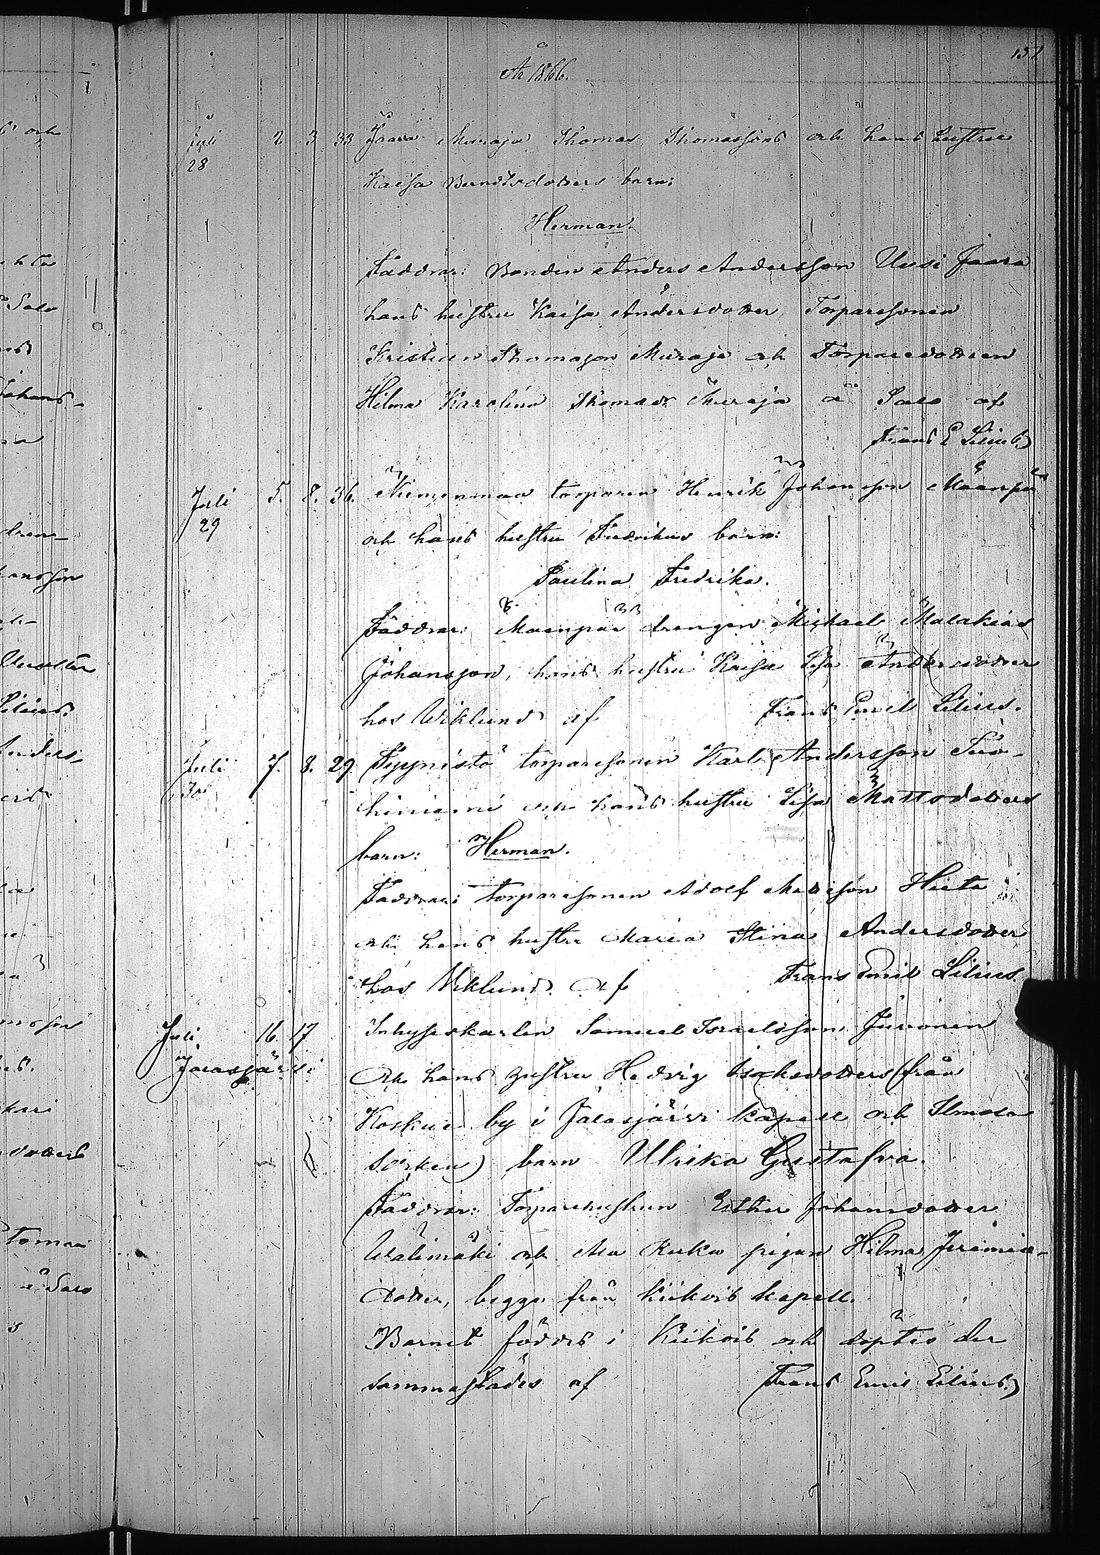 År 1866.
157
Juli 28 2 3 33 Jaara Muraja Thomas Thomassons och hans hustru
Kaisa Berndtsdotters barn:
Herman.
Faddrar: Bonden Anders Andersson Uusi Jaara
hans hustru Kaisa Andersdotter Torparesonen
Kristian Thomason Muraja och Torparedottren
Hilma Karolina Thomasdr Muraja å Salo af
Frans E Lilius
Juli 29 5. 8. 36. torparen Henrik Johansson Mäenpää
och hans hustru Fredrikas barn:
Paulina Fredrika.
Faddrar: Mäenpää drängen Michael Malakias
Johansson, hans hustru Kaisa Lisa Andersdotter
hos Wiklund af Frans Emil Lilius.
Juli 30 7. 8. 29 torparesonen Karl Andersson
och hans hustru Lisa Mattsdotters
barn: Herman.
Faddrar: torparesonen Adolf Mattsson
och hans hustru Maria Stina Andersdotter
hos Wiklund. Af Frans Emil Lilius.
Juli 16. 17 Inhyseskarlen Samuel Israelsson
Jalasjärvi
och hans hustru Hedvig Isaksdotters (från
Koskue by i Jalasjärvi kapell och Ilmola
socken) barn Ulrika Gustafva.
Faddrar: Torparehustrun Esther Johansdotter
Wälimäki och pigan Hilma Jeremia-
dotter, begge från Kiikois kapell.
Barnet föddes i Kiikois och döptes der
sammastädes af Frans Emil Lilius.